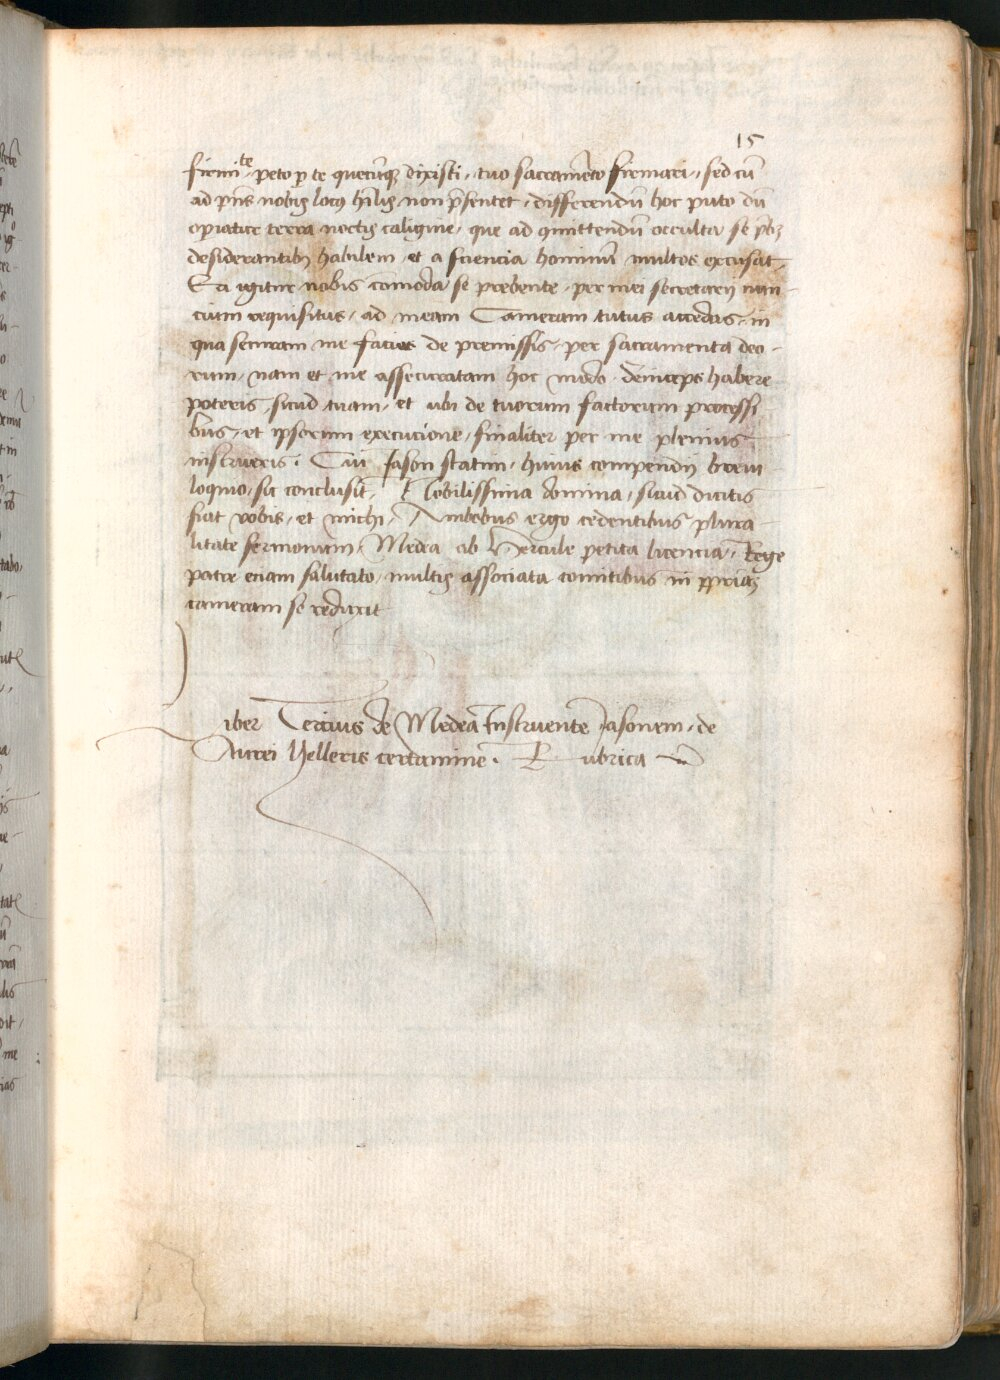 15
firmit͛ peto ꝑ te quecūqꝫ dixisti, tuo sacramēto firmari, sed cū
ad pn̄s nobis locꝰ hil̄is non p̄sentet, differendū hoc puto dū
opiatur terra noctis caligine, que ad cōmittendū occulta se p̄bꝫ
desiderantibꝫ habilem, et a sciencia hominū multos excusat,
Ea igitur nobis cōmoda se prebente, per mei secretarij nun-
cium requisitus, ad meam Cameram tutus accedas, in
qua securam me facies de premissis, per sacramenta deo-
rum, nam et me assecuratam hoc modo, deinceps habere
poteris, sicud tuam, et ubi de tuorum factorum processi
bus, et ipsorum execucione, finaliter per me plenius
instrueris. Cui Jason statim, huius compendij breui
loquio, sic conclusit, Nobilissima domina, sicud dicitis
fiat vobis, et michi, Ambobus ergo cedentibus plura-
litate sermonum, Medea ab Hercule petita licencia, Rege
patre eciam salutato, multis associata comitibus in ꝓpriaꝫ
cameram se reduxit
Liber Tercius de Medea Instruente Iasonem, de
Aurei Velleris certamine. Rubrica